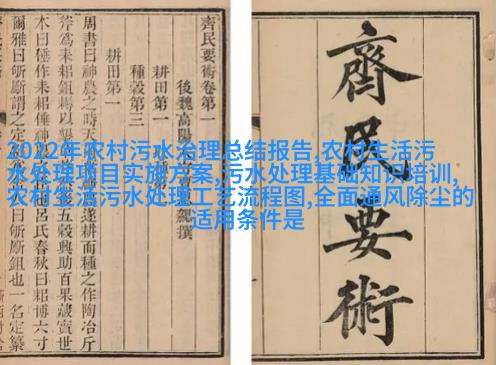 2022年农村污水治理总结报告,农村生活污
水处理项目实施方案,污水处理基础知识培训,
农村生活污水处理工艺流程图,全面通风除尘的
适用条件是
齊民要術
齊民要術卷第一
後魏高陽撰
耕田第一
種穀第三
耕田第一
周書曰神農之時天遂耕而種之作陶冶斤
斧為耒耜鋤耨以墾五穀興助百果藏實世
本曰倕作耒耜倕神呂氏春秋曰耜博六寸
爾雅曰斪斸謂之定曰斪斸鉏也一名定纂